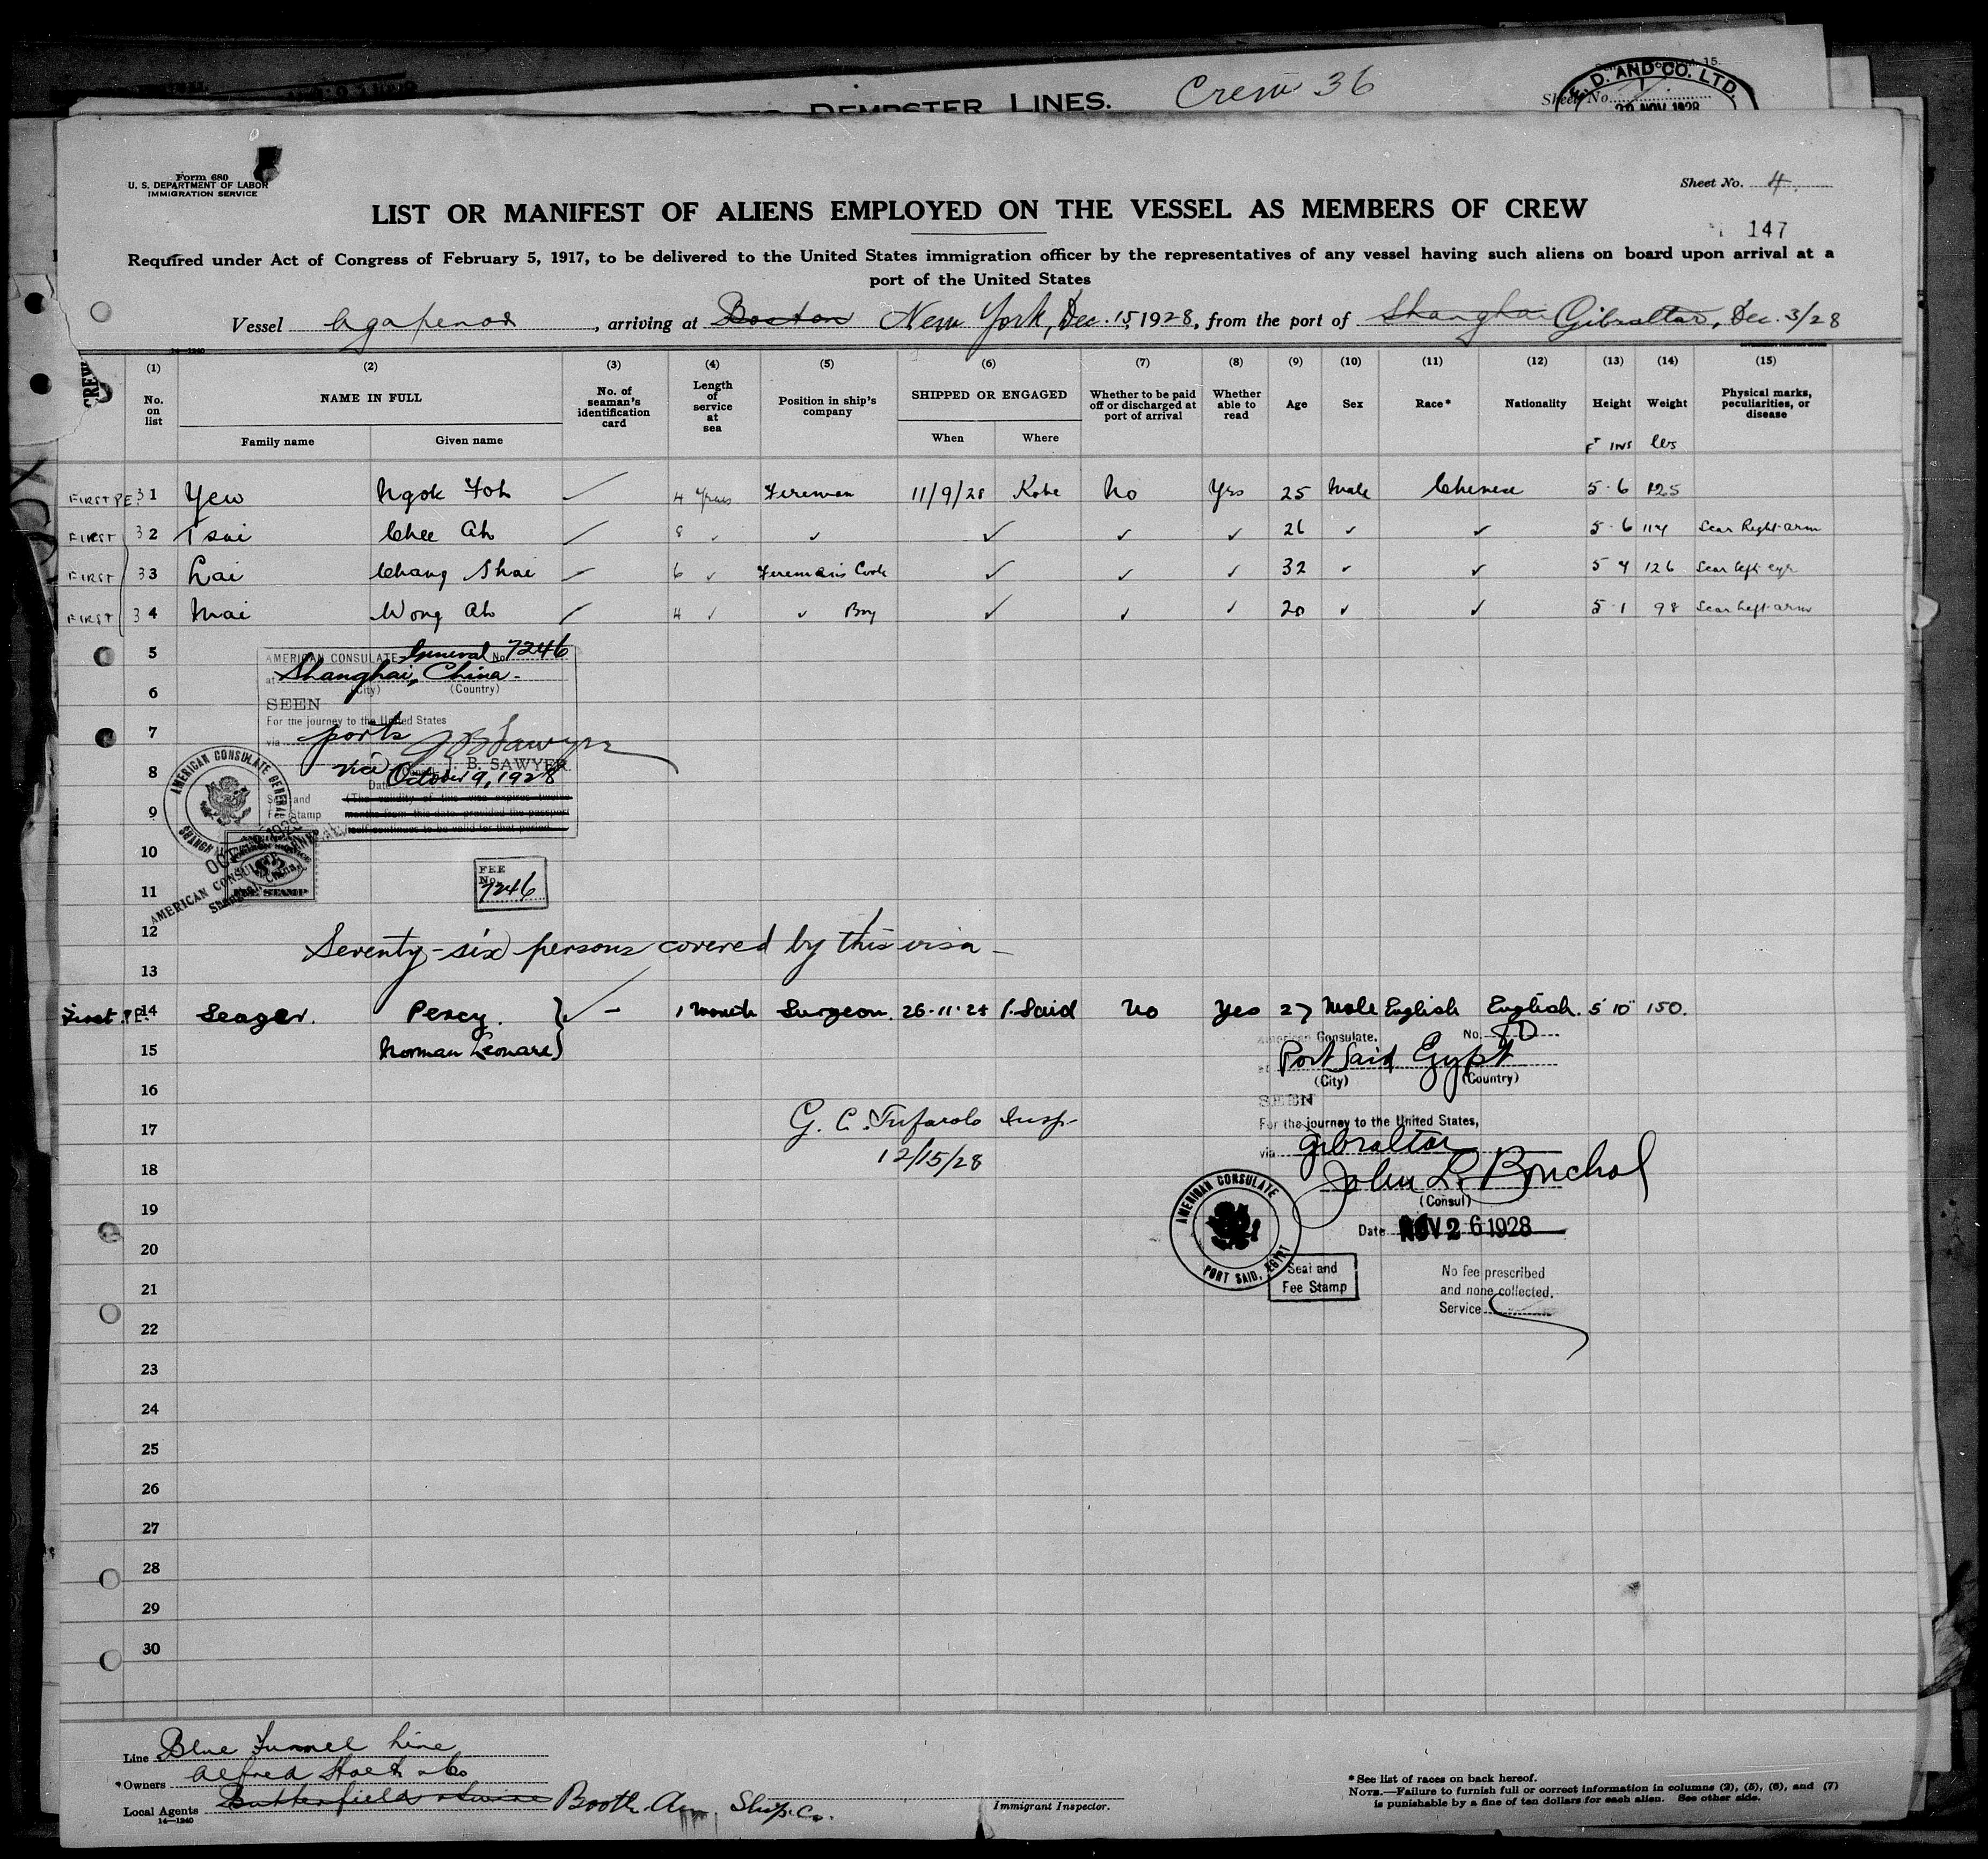 DEMPSTER LINES. Crew 36
Sheet No.
D. AND CO. LTD.
NOV 1928
Form 680
U. S. DEPARTMENT OF LABOR
IMMIGRATION SERVICE
Sheet No. 4.
LIST OR MANIFEST OF ALIENS EMPLOYED ON THE VESSEL AS MEMBERS OF CREW
147
Required under Act of Congress of February 5, 1917, to be delivered to the United States immigration officer by the representatives of any vessel having such aliens on board upon arrival at a
port of the United States
Vessel Agapenor, arriving at Boston New York, Dec. 15, 1928, from the port of Shanghai Gibraltar, Dec. 3/28
CREW
(1) (2) (3) (4) (5) (6) (7) (8) (9) (10) (11) (12) (13) (14) (15)
No. on list
NAME IN FULL
Family name Given name
No. of seaman's identification card
Length of service at sea
Position in ship's company
SHIPPED OR ENGAGED
When Where
Whether to be paid off or discharged at port of arrival
Whether able to read
Age
Sex
Race*
Nationality
Height
Weight
Physical marks, peculiarities, or disease
F INS lbs
FIRST P.E. 31 Yew Ngok Foh ✓ 4 years Fireman 11/9/28 Kobe No Yes 25 Male Chinese 5·6 125
FIRST 32 Tsai Chee Ah ✓ 8 ✓ ✓ ✓ ✓ ✓ 26 ✓ ✓ 5·6 114 Scar Right arm
FIRST 33 Lai Chang Shai ✓ 6 ✓ Fireman's Cook ✓ ✓ ✓ 32 ✓ ✓ 5 4 126 Scar left eye
FIRST 34 Mai Wong Ah ✓ 4 ✓ ✓ Boy ✓ ✓ ✓ 20 ✓ ✓ 5·1 98 Scar Left arm
5
AMERICAN CONSULATE General No. 7246
at Shanghai, China.
(City) (Country)
6
SEEN
For the journey to the United States
7
via ports J B Sawyer
vice Consul J. B. SAWYER.
8
Date October 9, 1928
Seal and Fee Stamp
(The validity of this visa expires twelve
months from this date provided the passport
itself continues to be valid for that period
AMERICAN CONSULATE GENERAL
9
10
AMERICAN CONSULATE GENERAL
Shanghai, China
FEE STAMP
FEE
No.
7246
11
12
Seventy-six persons covered by this visa
13
First P.E. 14 Seager. Percy. } ✓ – 1 month Surgeon. 26·11·28 P. Said No Yes 27 Male English English. 5 10 150.
15 Norman Leonard
American Consulate. No.
at Port Said Egypt
(City) (Country)
16
SEEN
For the journey to the United States,
via Gibraltar
17
G. C. Tufarolo Insp.
12/15/28
18
(Consul)
19
Date NOV 26 1928
AMERICAN CONSULATE
PORT SAID, EGYPT
20
Seal and
Fee Stamp
No fee prescribed
and none collected.
Service
21
22
23
24
25
26
27
28
29
30
Line Blue Funnel Line
*Owners Alfred Holt & Co
Local Agents Butterfield & Swire Booth Am. Ship. Co.
14—1240
Immigrant Inspector.
* See list of races on back hereof.
NOTE.—Failure to furnish full or correct information in columns (2), (5), (6), and (7)
is punishable by a fine of ten dollars for each alien. See other side.